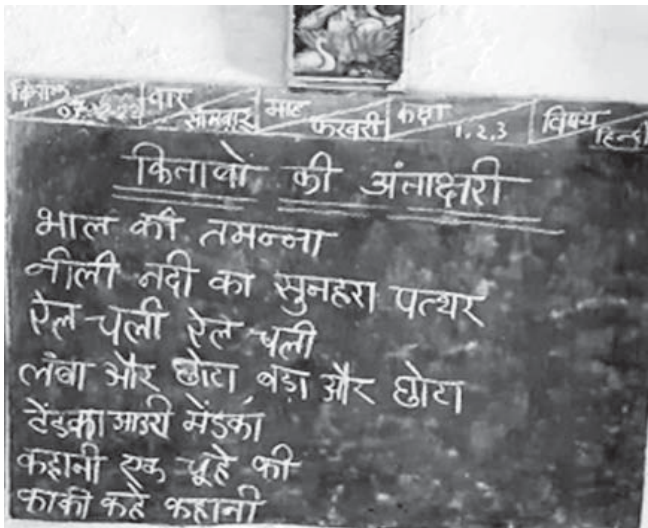 दिनांक 07-2-22 वार सोमवार माह फरवरी कक्षा 1,2,3 विषय हिन्दी
किताबों की अंताक्षरी
भालू की तमन्ना
नीली नदी का सुनहरा पत्थर
रेल चली रेल चली
लंबा और छोटा बड़ा और छोटा
टेंडका आउरी मेंडका
कहानी एक चूहे की
काकी कहे कहानी